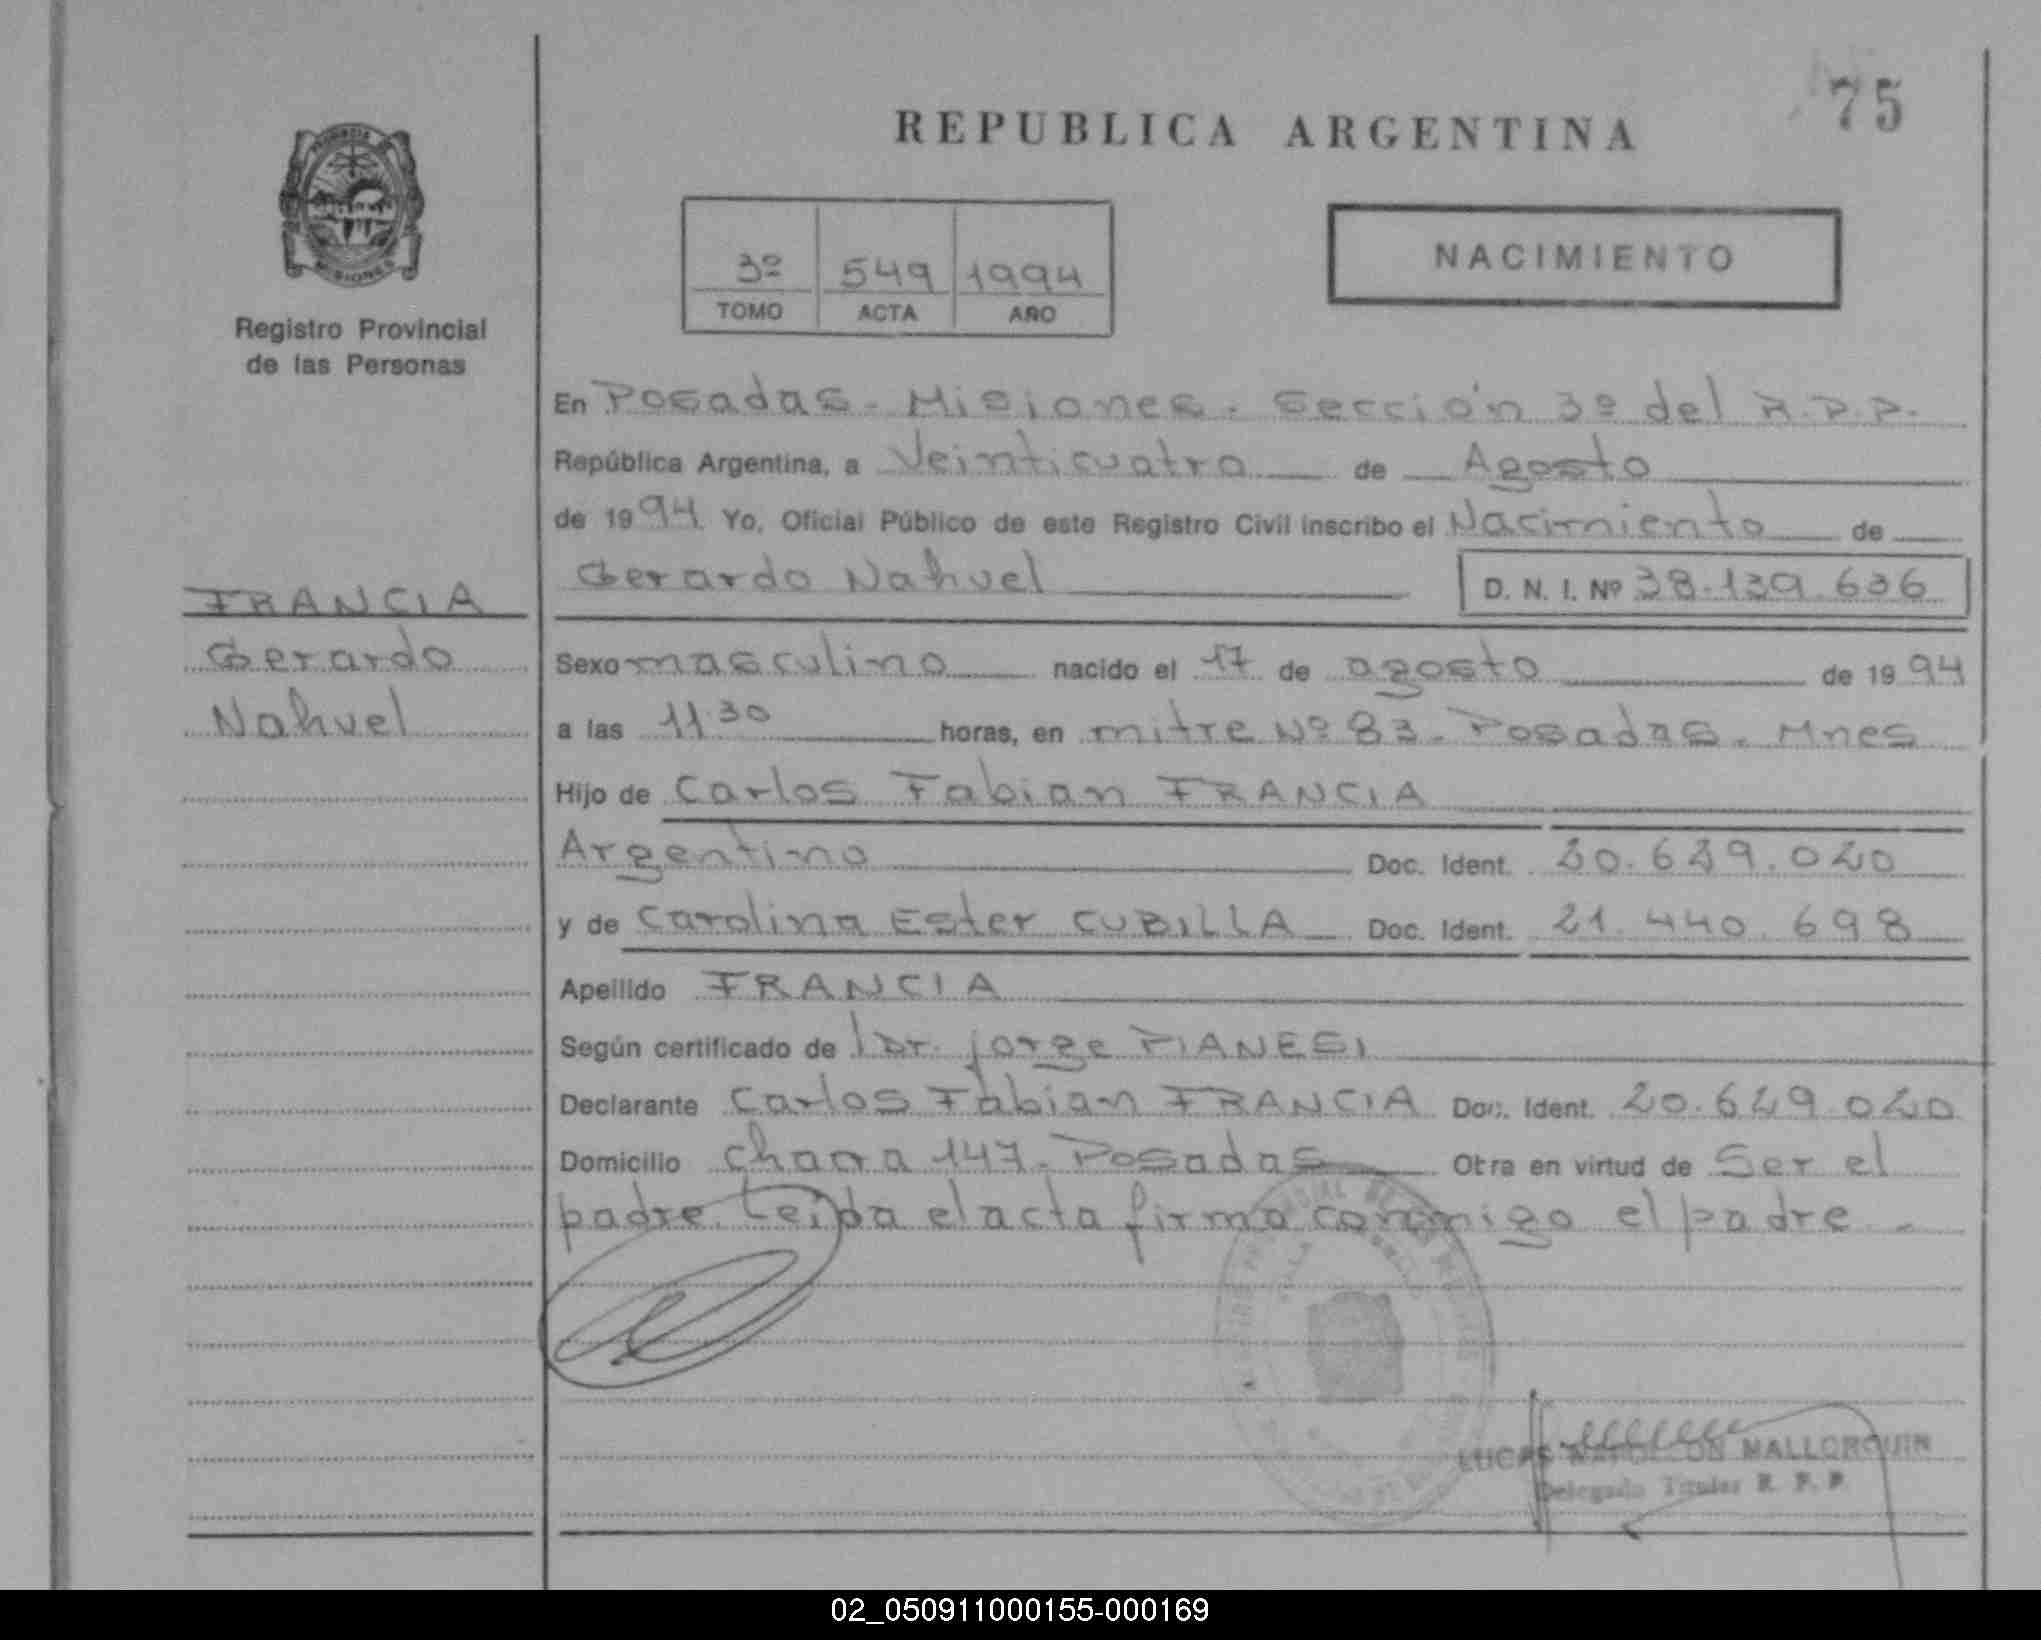 75
REPUBLICA ARGENTINA
NACIMIENTO
3º 549 1994
TOMO ACTA AÑO
MISIONES
Registro Provincial
de las Personas
En Posadas - Misiones. Sección 3º del R.P.P.
República Argentina, a Veinticuatro de Agosto
de 1994 Yo, Oficial Público de este Registro Civil inscribo el Nacimiento de
Gerardo Nahuel D. N. I. Nº 38.139.636
FRANCIA
Gerardo
Nahuel
Sexo masculino nacido el 17 de agosto de 1994
a las 11.30 horas, en mitre Nº 83. Posadas. Mnes
Hijo de Carlos Fabian FRANCIA
Argentino Doc. Ident. 20.629.020
y de Carolina Ester CUBILLA Doc. Ident. 21.440.698
Apellido FRANCIA
Según certificado de Dr. Jorge PIANESI
Declarante Carlos Fabian FRANCIA Doc. Ident. 20.629.020
Domicilio Chacra 147. Posadas Otra en virtud de Ser el
padre. Leida el acta firma conmigo el padre.
LUCAS NAPOLEON MALLORQUIN
Delegado Titular R. P. P.
02_050911000155-000169